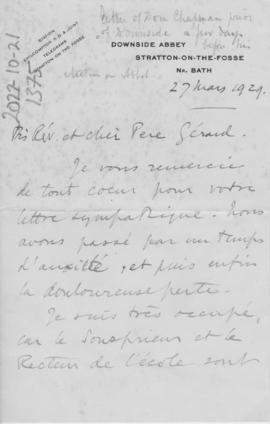 Letter of Dom Chapman prior
of Downside a few days
before his
election as Abbot
DOWNSIDE ABBEY
STRATTON-ON-THE-FOSSE
NR. BATH
STATION
CHILCOMPTON S. & D. JOINT
TELEGRAMS
STRATTON-ON-THE-FOSSE
2022-10-21
1375
27 Mars 1929.
Très Rév. et cher Père Gérard.
Je vous remercie
de tout coeur pour votre
lettre sympathique. Nous
avons passé par un temps
d'anxiété, et puis enfin
la douloureuse perte.
Je suis très occupé,
car le Sousprieur et le
Recteur de l'école sont